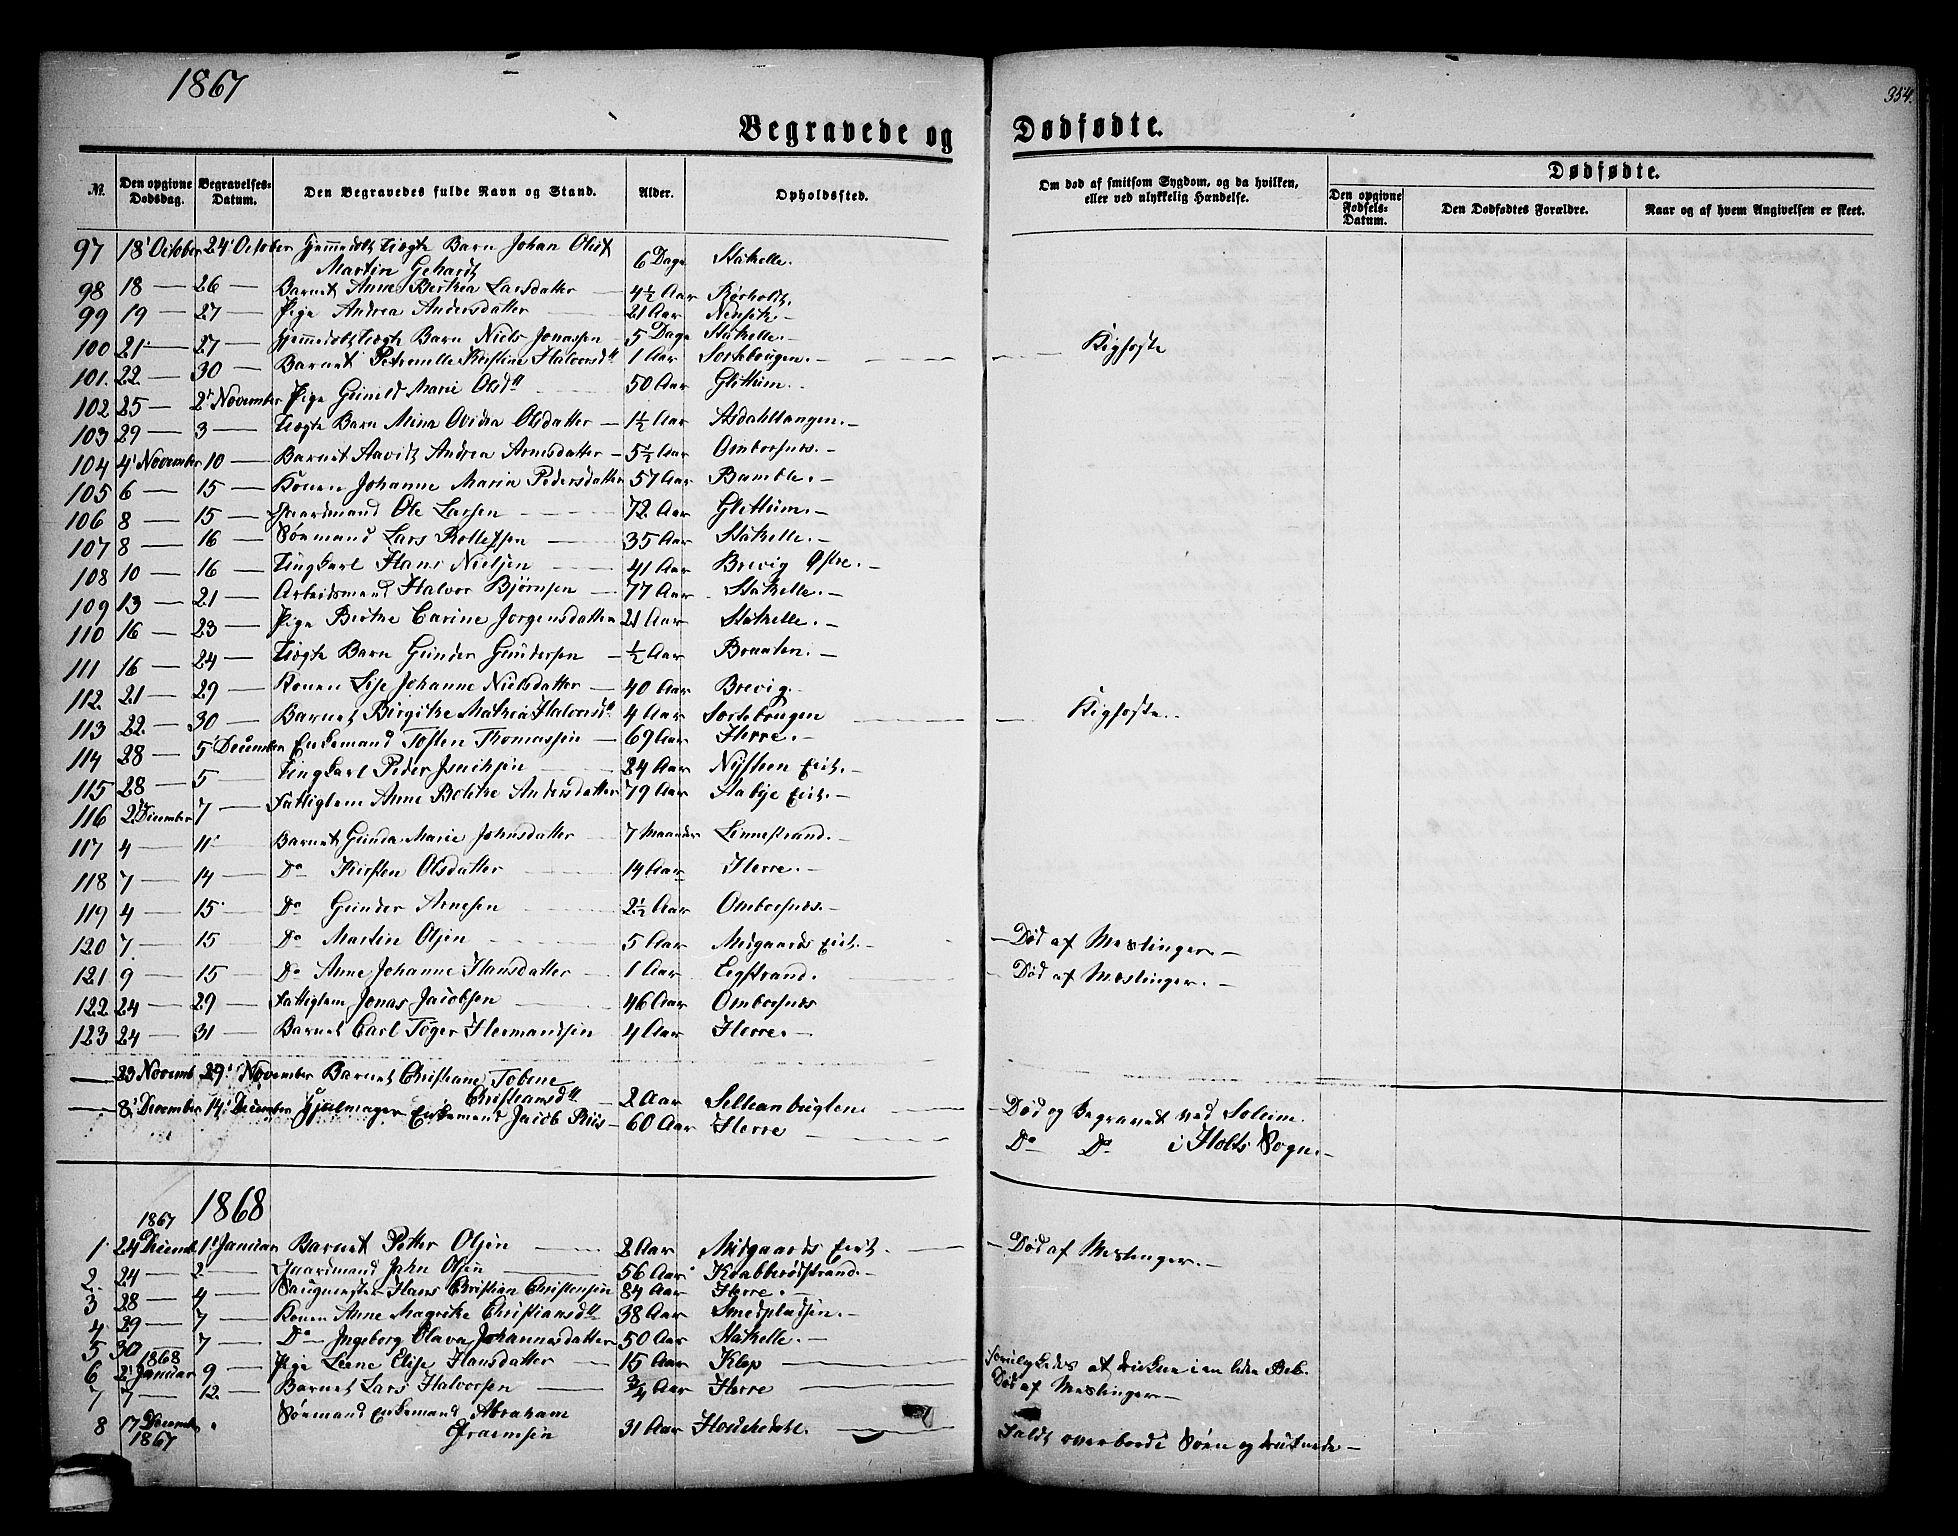 1867
354.
Begravede og Dødfødte.
№ Den opgivne Dødsdag. Begravelses-Datum. Den Begravedes fulde Navn og Stand. Alder. Opholdssted. Om død af smitsom Sygdom, og da hvilken, eller ved ulykkelig Hændelse. Dødfødte.
Den opgivne Fødsels-Datum. Den Dødfødtes Forældre. Naar og af hvem Angivelsen er skeet.
97 18' October 24' October Hjemmedøbt Uægte Barn Johan
Martin Gehardt 6 Dage Stathelle.
98 18 — 26 — Barnet Anne Berthea Larsdatter — 4½ Aar Rørholt.
99 19 — 27 — Pige Andrea Andersdatter — 21 Aar
100 21' — 27 — Hjemmedøbt Uægte Barn Niels Jonassen 5 Dage Stathelle. —
101. 22. — 30 — Barnet Petronelle Kirstine Halvorsdtr 1 Aar — Kighoste
102 25 — 2' November Pige Gunild Marie Olsdtr 50 Aar Glittum. —
103 29 — 3 — Uægte Barn Mina Ovidia Olsdatter — 1½ Aar Asdahltangen. —
104 4' November 10 — Barnet Andrea Arnesdatter — 5½ Aar Ombordsnes. —
105 6 — 15 — Konen Johanne Maria Pedersdatter 57 Aar Bamble. —
106 8 — 15 — Gaardmand Ole Larsen — 72 Aar Glittum. —
107 8 — 16 — Sømand Lars Rollefsen — 35 Aar Stathelle. —
108 10 — 16 — Ungkarl Hans Nielsen — 41 Aar Brevig Østre. —
109 13 — 21 — Arbeidsmand Halvor Bjørnsen — 77 Aar Stathelle. —
110 16 — 23 — Pige Berthe Carine Jorgensdatter 21 Aar Stathelle. —
111 16 — 24 — Uægte Barn Gunder Gundersen — ½ Aar Braaten. —
112. 21 — 29 — Konen Lise Johanne Nielsdatter — 40 Aar Brevig. —
113 22. — 30 — Barnet Birgithe Mathea Halvorsdtr 4 Aar — Kighoste. .
114 28 — 5' December Enkemand Tosten Thomassen — 69 Aar Herre. —
115 28 — 5 — Ungkarl Peder — 24 Aar
116 2' December 7 — Fattiglem Anne Bolethe Andersdatter 79 Aar
117 4 — 11' Barnet Gunda Marie Johnsdatter — 7 Maaneder Linnestrand. —
118 7 — 14 — Do Kirsten Olsdatter — 14 Aar Herre. —
119 4 — 15' — Do Gunder Arnesen — 2½ Aar Ombordsnes. —
120 7. — 15 — Do Martin Olsen — 5 Aar Midgaards Eiet. — Død af Meslinger. —
121 9 — 15 — Do Anne Johanne Hansdatter — 1 Aar Eegstrand. — Død af Meslinger. —
122 24 — 29 — Fattiglem Jonas Jacobsen — 46 Aar Ombordsnes
123 24 — 31 — Barnet Carl Tøger Hermandsen 4 Aar Herre. —
— 23 Novemb 29' November Barnet Christiane Tobine
Christiansdtr — 2 Aar — Død og Begravet ved Soleim.
— 8' December 14' December Hjulmager Enkemand Jacob Riis — 60 Aar Herre — Do Do i Holts Sogn. —
1867 1868
1' 24 Decemb. 1' Januar Barnet Petter Olsen — 2 Aar Midgaards Eiet. — Død af Meslinger. —
2. 24 — 2 — Gaardmand Jahn Olsen — 56 Aar Krabberødstrand. —
3 28 — 4 — Hans Christian Christensen 84 Aar Herre. —
4 29 — 7 — Konen Anne Magrethe Christiansdtr 38 Aar Smedpladsen. —
5 30 — 7 — Do Ingeborg Olava Johannesdatter 50 Aar Stathelle. —
1868
6 2' Januar 9 — Pige Leene Elise Hansdatter — 15 Aar Klep — Forulykkedes at drukne i en liden Bæk.
7 7 — 12. — Barnet Lars Halvorsen — ¾ Aar Herre — Død af Meslinger —
8 17 December " Sømand Enkemand Abraham
1867 31 Aar — Faldt overbord i Søen og druknede —